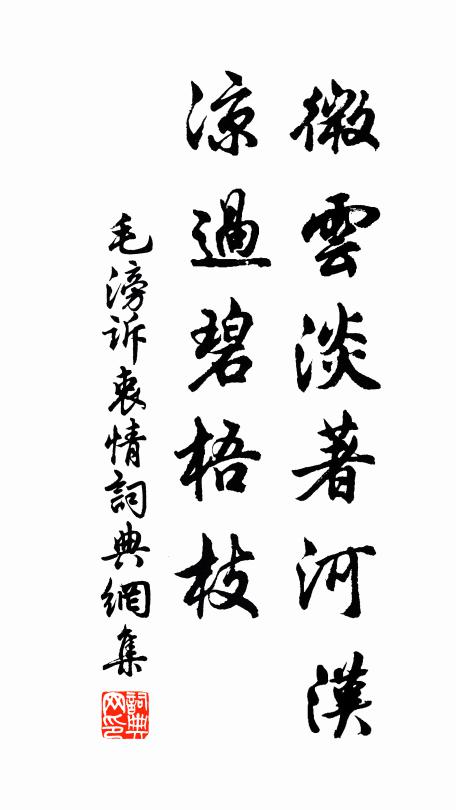 微雲淡著河漢
涼過碧梧枝
毛滂訴衷情詞典網集
詞典網印